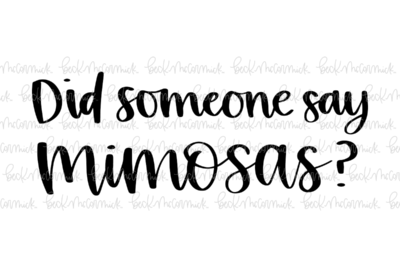 Did someone say
mimosas?